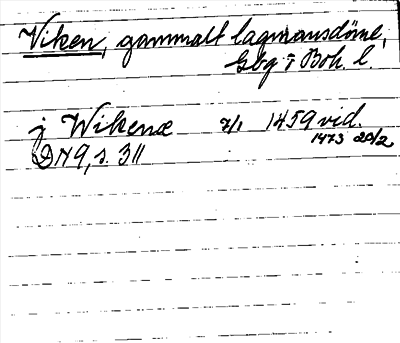 Viken, gammalt lagmansdöme,
Gbg o Boh. l.
j Wikenæ 7/1 1459 vid.
1473 20/2
DN 9, s. 311